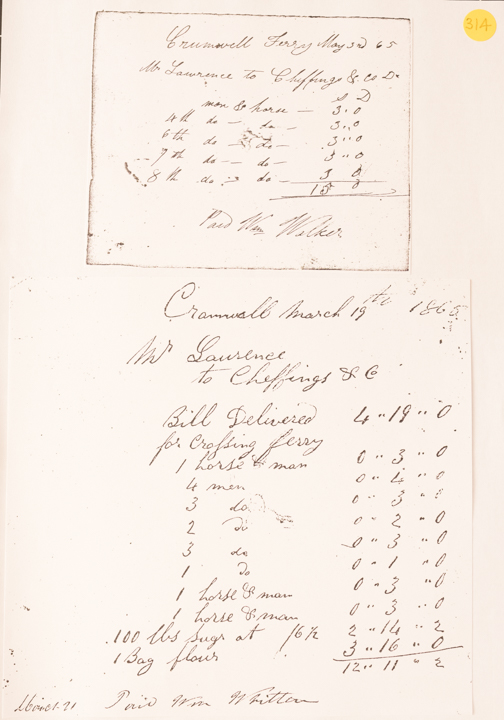 314
Crumwell Ferry May 3rd 65
Mr Lawrence to Cheffings & Co Dr
S D
man & horse — 3 " 0
4th do — do — 3 " 0
6th do — do — 3 " 0
7th do — do — 3 " 0
8th do — do — 3 0
15 0
Paid Wm Welker
Cramwall March 19th 1865
Mr Laurence
to Cheffings & C
Bill Delivered 4 " 19 " 0
for Crossing ferry
1 horse & man 0 " 3 " 0
4 men 0 " 4 " 0
3 do 0 " 3 " 0
2 do 0 " 2 " 0
3 do 0 " 3 " 0
1 do 0 " 1 " 0
1 horse & man 0 " 3 " 0
1 horse & man 0 " 3 " 0
100 lbs sugr at /6½ 2 " 14 " 2
1 Bag flour 3 " 16 " 0
12 " 11 " 2
Paid Wm Written